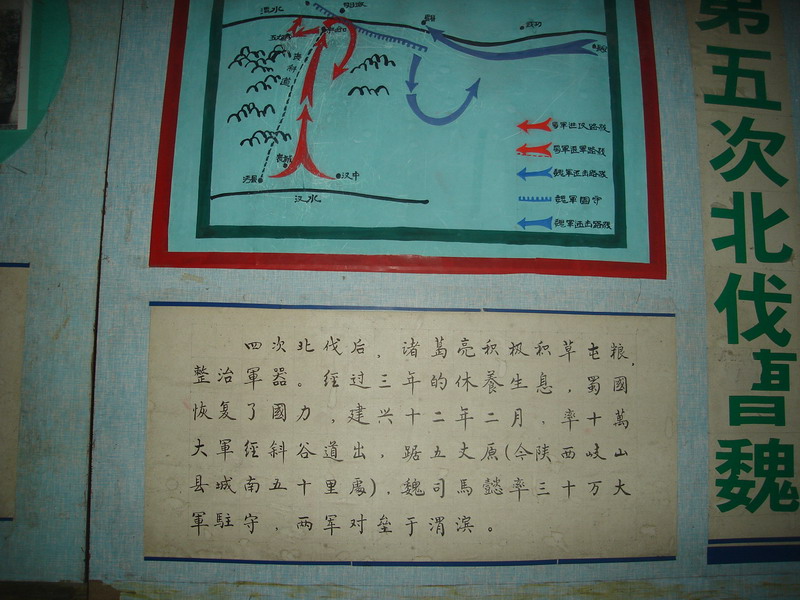 渭水
五丈原
斜谷口
郿
武功
斜
道
褒城
沔县
汉中
汉水
蜀軍退役路线
蜀軍進軍路线
魏軍固守
第五次北伐曹魏
四次北伐后，诸葛亮积极积草屯粮，
整治軍器。经过三年的休養生息，蜀國
恢复了國力，建兴十二年二月，率十萬
大軍经斜谷道出，踞五丈原(今陕西岐山
县城南五十里處)，魏司馬懿率三十万大
軍駐守，两军对垒于渭滨。